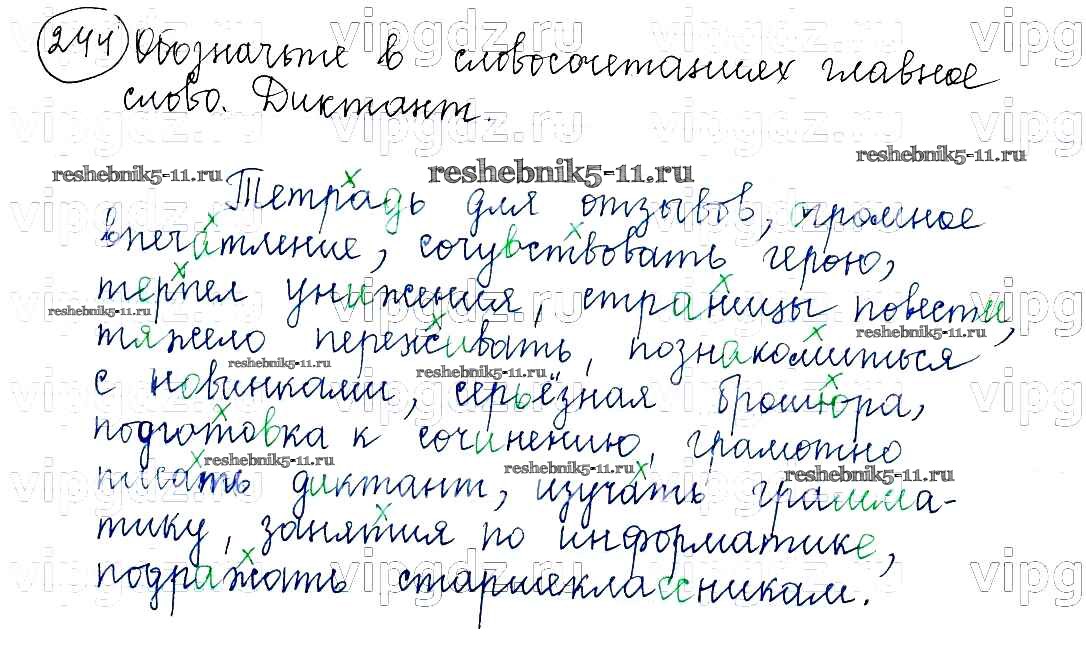 244 Обозначьте в словосочетаниях главное
слово. Диктант.
reshebnik5-11.ru reshebnik5-11.ru reshebnik5-11.ru
Тетрадь для отзывов, огромное
впечатление, сочувствовать герою,
терпел унижения, страницы повести,
reshebnik5-11.ru reshebnik5-11.ru
тяжело переживать, познакомиться
reshebnik5-11.ru reshebnik5-11.ru
с новинками, серьёзная брошюра,
подготовка к сочинению, грамотно
reshebnik5-11.ru reshebnik5-11.ru reshebnik5-11.ru
писать диктант, изучать грамма-
тику, занятия по информатике,
подражать старшеклассникам.
vipgdz.ru vipgdz.ru vipgdz.ru vipg